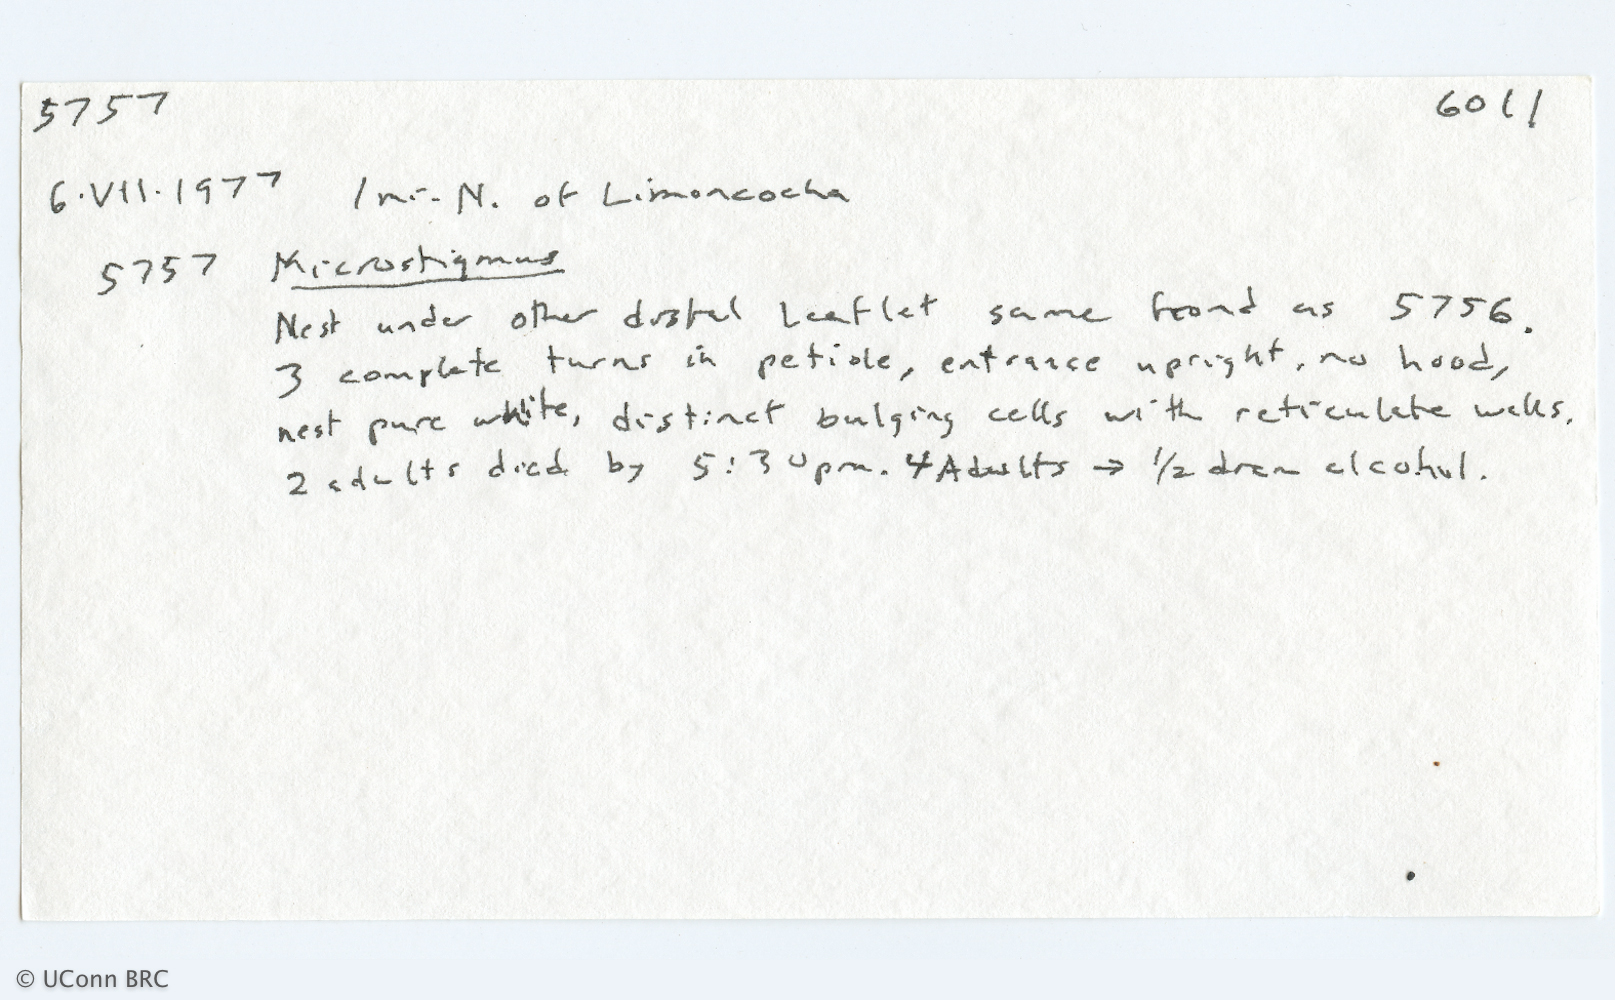 5757 6011
6.VII.1977 1 mi. N. of Limoncocha
5757 Microstigmus
Nest under other distal leaflet same frond as 5756.
3 complete turns in petiole, entrance upright, no hood,
nest pure white, distinct bulging cells with reticulate walls.
2 adults died by 5:30pm. 4 Adults → 1/2 dram alcohol.
© UConn BRC